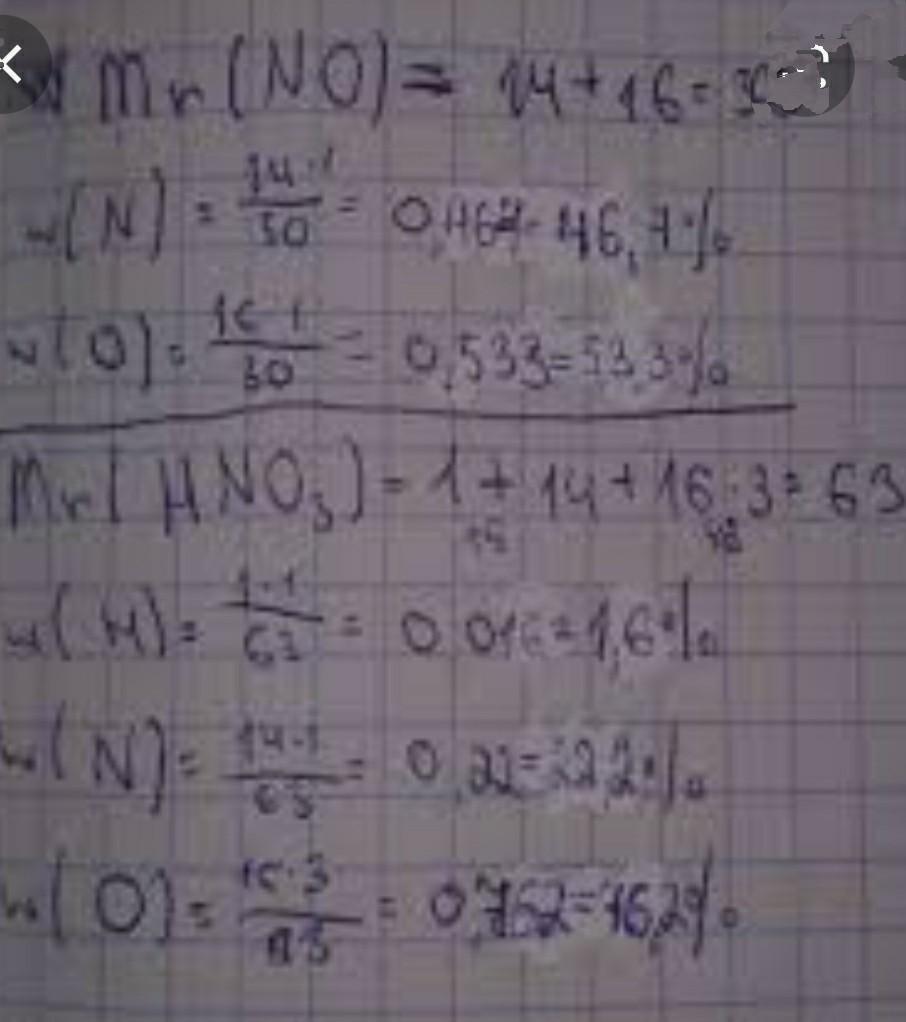 Mr(NO) = 14 + 16 =
w(N) = 14·1/30 = 0,467 = 46,7%
w(O) = 16·1/30 = 0,533 = 53,3%
Mr(HNO₃) = 1 + 14 + 16·3 = 63
48
w(H) = 1·1/63 = 0,016 = 1,6%
w(N) = 14·1/63 = 0,22 = 22,2%
w(O) = 16·3/63 = 0,762 = 76,2%